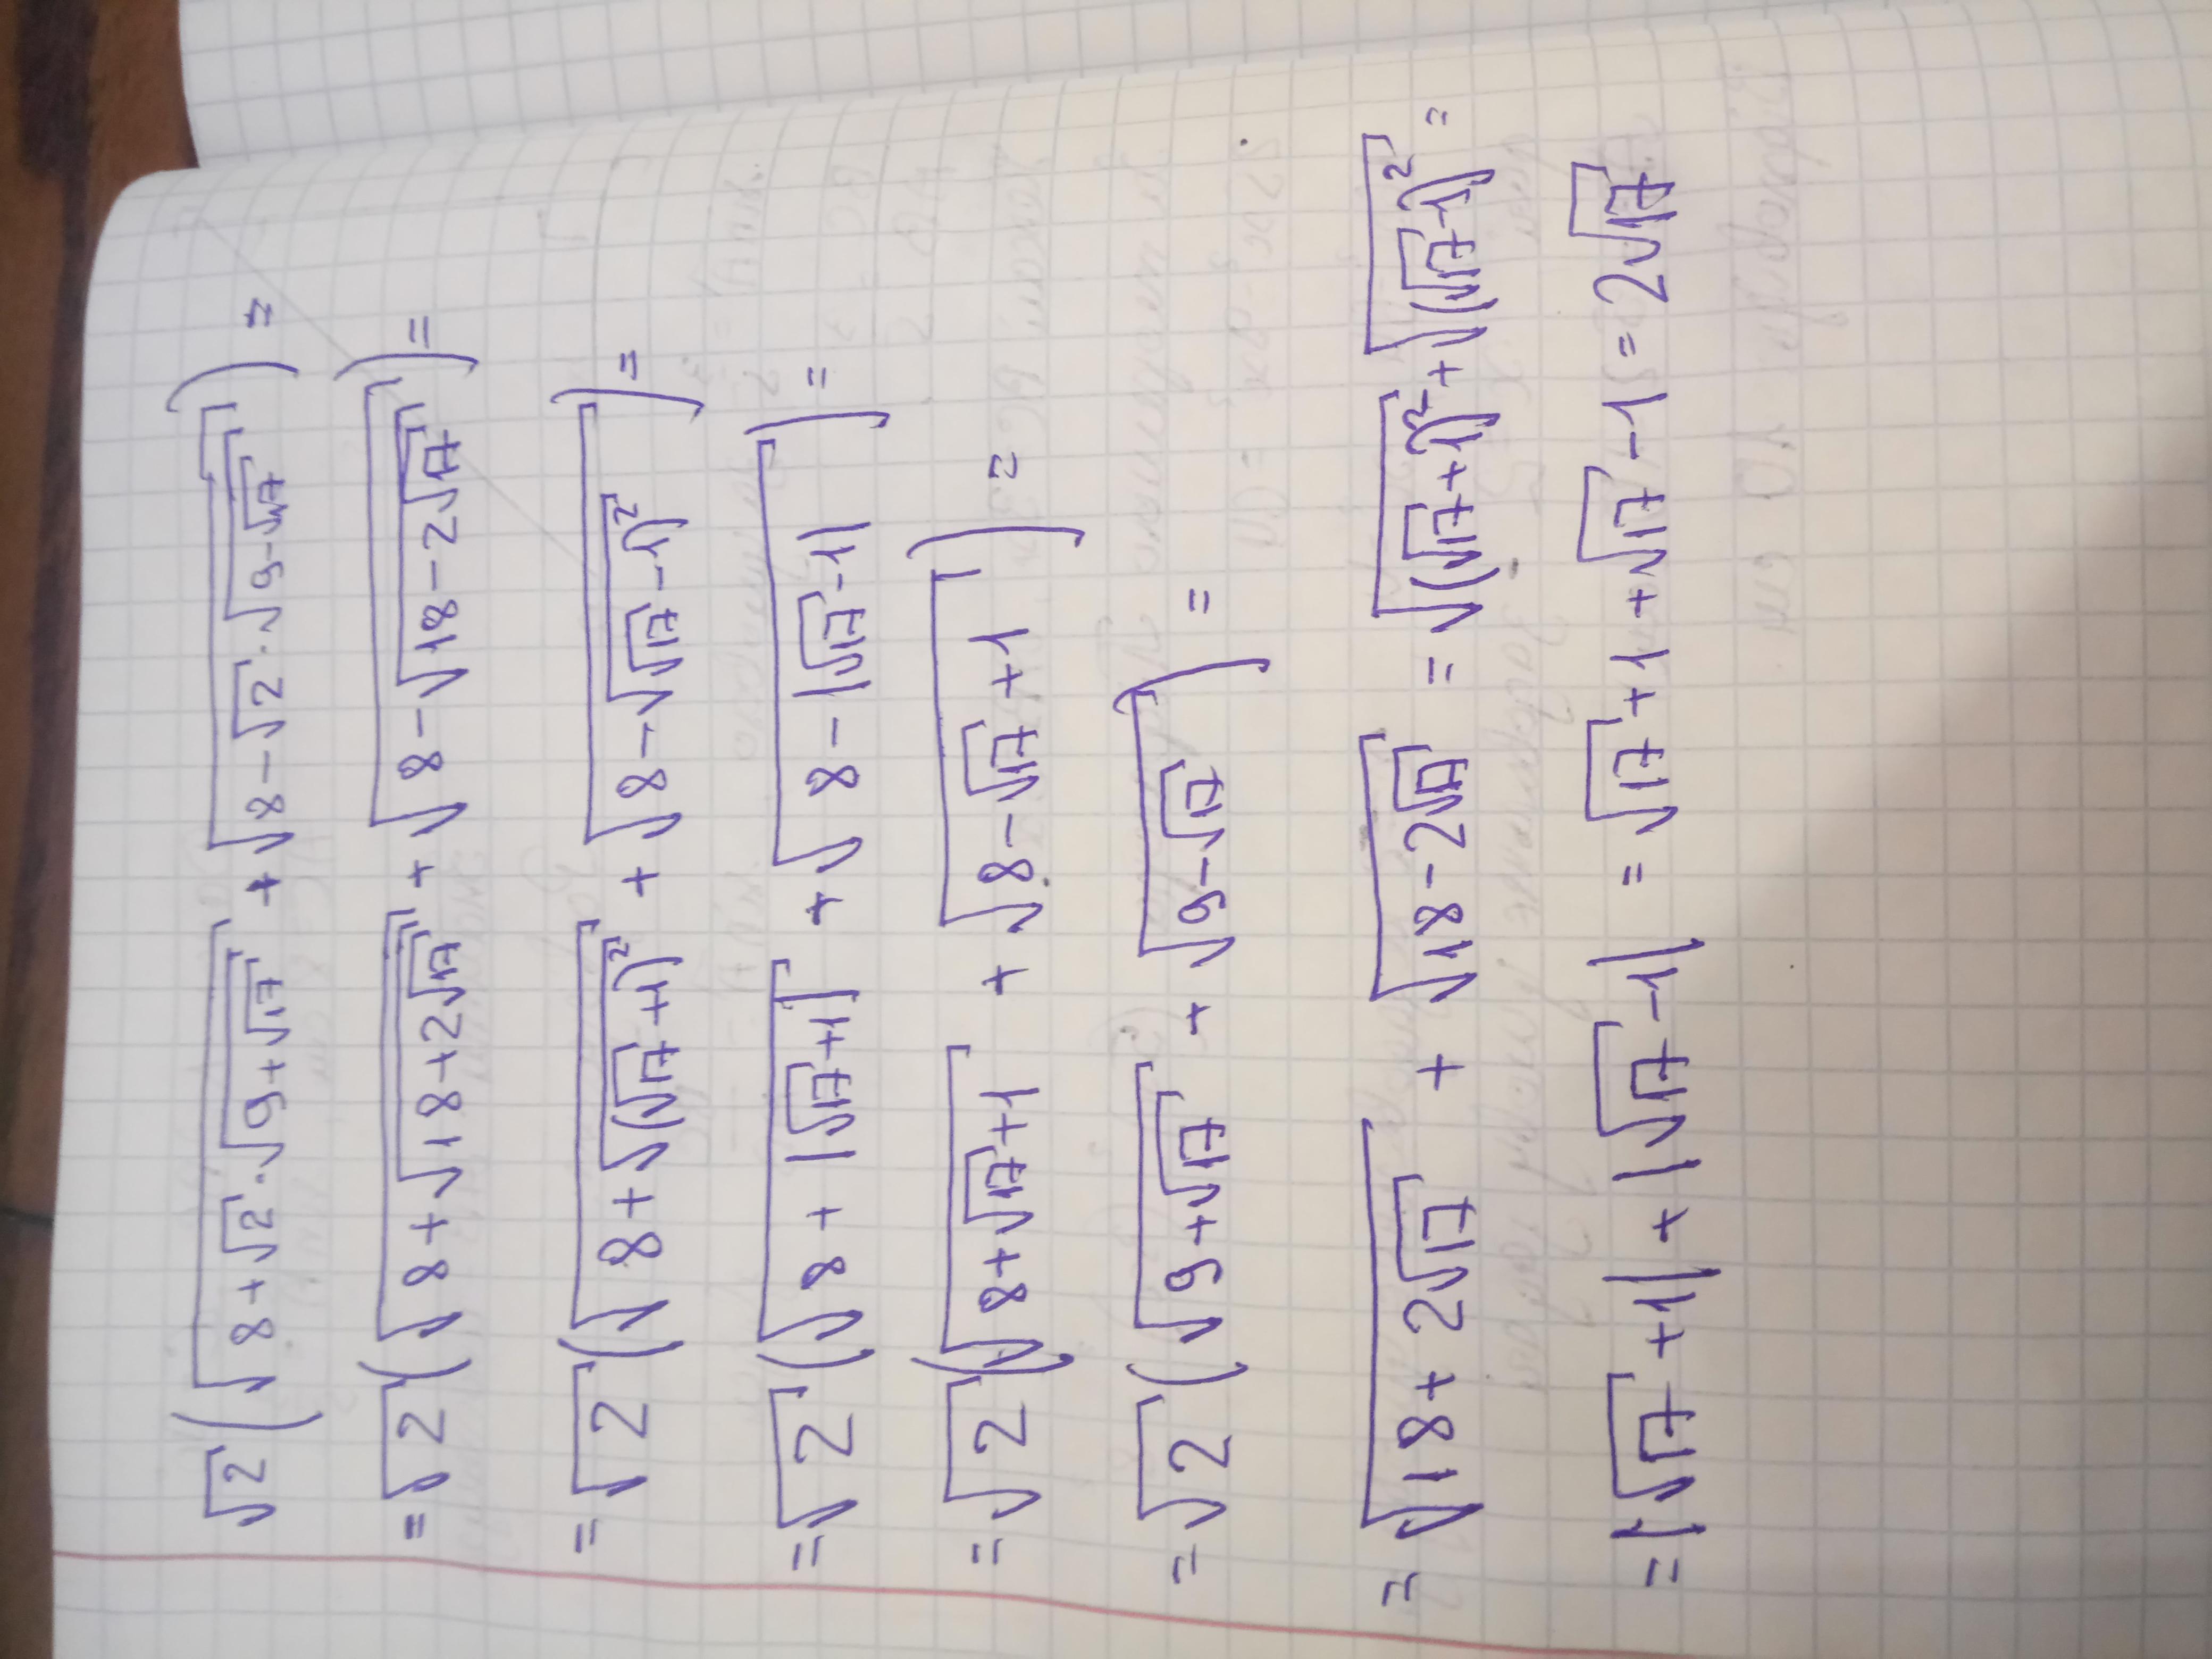 √2 (√(8+√2·√(9+√17)) + √(8-√2·√(9-√17))) =
= √2 (√(8+√(18+2√17)) + √(8-√(18-2√17))) =
= √2 (√(8+√((√17+1)²)) + √(8-√(√17-1)²)) =
= √2 (√(8+|√17+1|) + √(8-|√17-1|)) =
= √2 (√(8+√17+1) + √(8-√17+1)) =
= √2 (√(9+√17) + √(9-√17)) =
= √(18+2√17) + √(18-2√17) = √((√17+1)²) + √((√17-1)²) =
= |√17+1| + |√17-1| = √17+1+√17-1 = 2√17